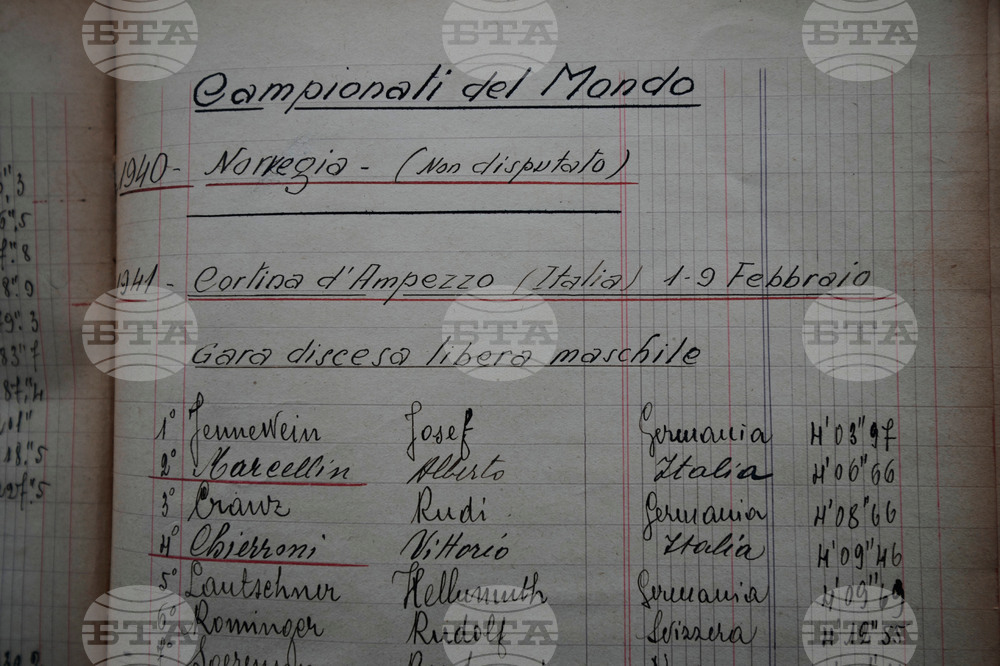 Campionati del Mondo
1940 - Norvegia - (Non disputato)
1941 - Cortina d'Ampezzo (Italia) 1-9 Febbraio
Gara discesa libera maschile
1° Jennewein Josef Germania 4'03"97
2° Marcellin Alberto Italia 4'06"66
3° Cranz Rudi Germania 4'08"66
4° Chierroni Vittorio Italia 4'09"46
5° Lautschner Hellemuth Germania 4'09"49
6° Rominger Rudolf Svizzera 4'12"55
БТА
БТА
БТА
БТА
БТА
БТА
БТА
БТА
БТА